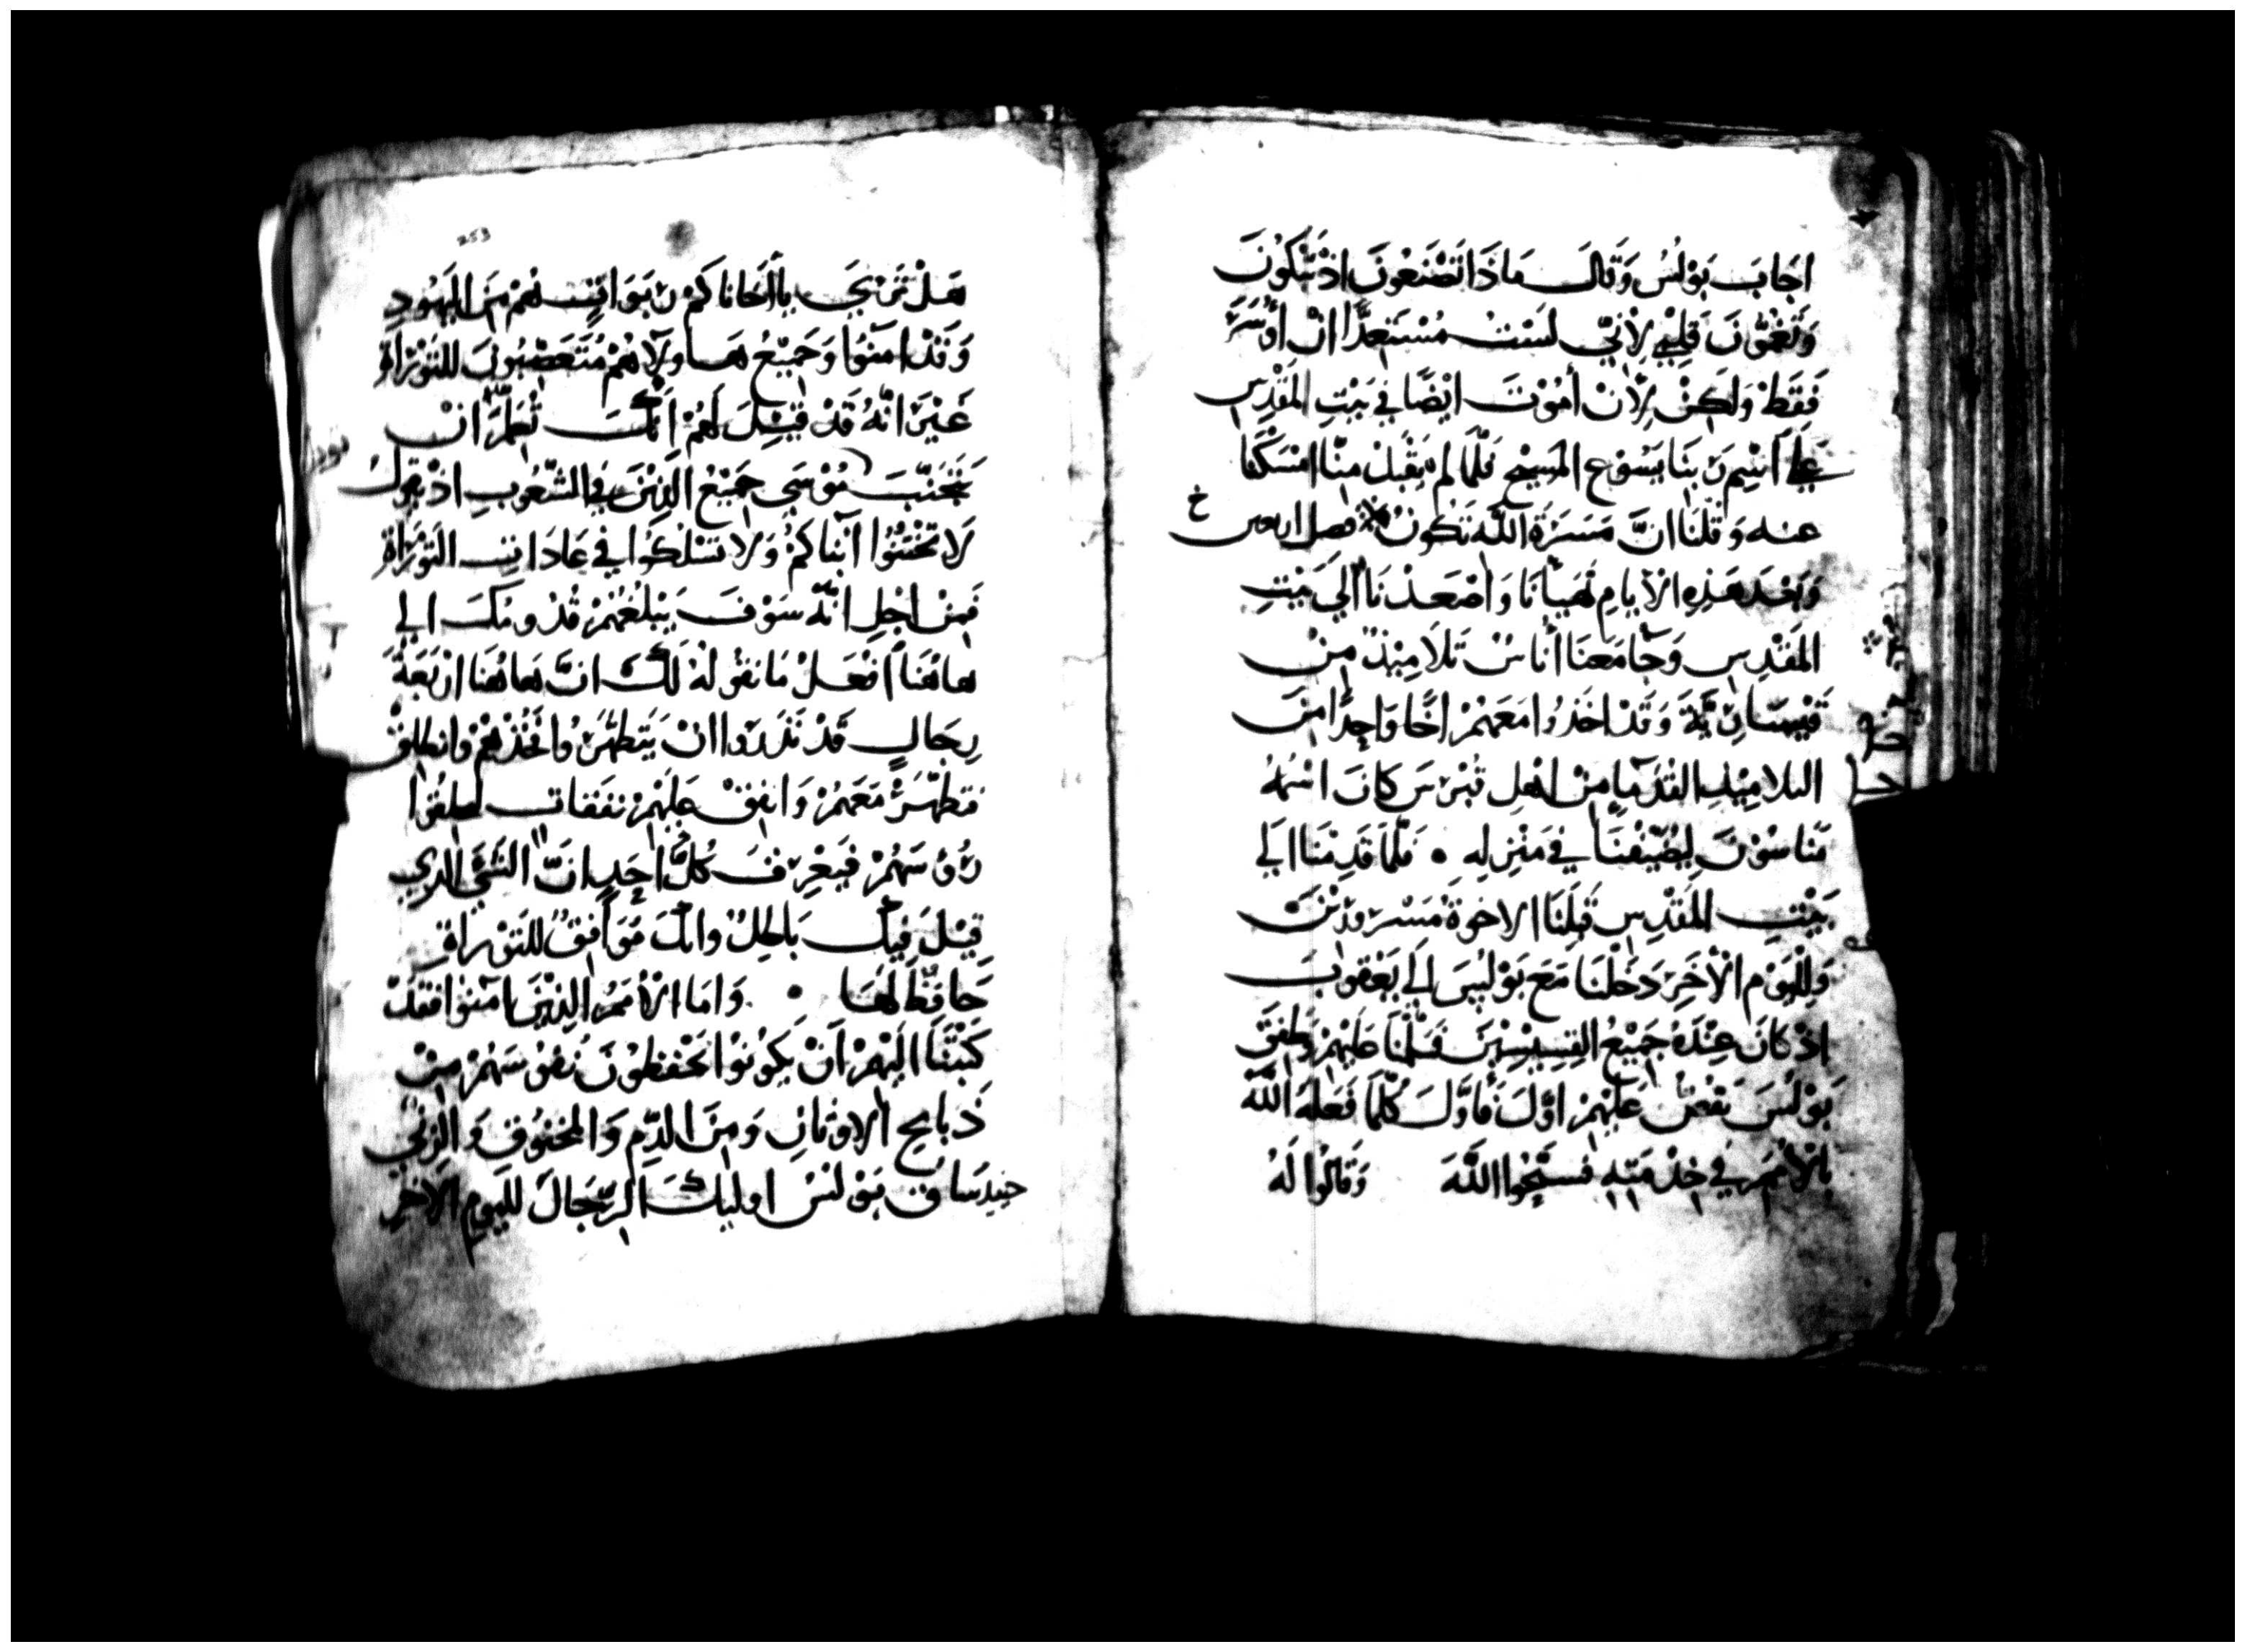 اجَابَ بَوْلُسُ وَقَالَ مَاذَا تَصْنَعُونَ اذْ تَبْكُونَ
وَتَغُمُّونَ قَلْبِي لِأَنِّي لَسْتُ مُسْتَعِدًّا انْ أُوسَرَ
فَقَطْ وَلَكِنْ لِأَنْ أَمُوْتَ ايْضًا فِي بَيْتِ المَقْدِسِ
عَلَي اسْمِ رَبِّنَا يَسُوْع المَسِيْحِ فَلَمَّا لم يَقْبَلْ مِنَّا امْسَكْنَا
عنه وَقُلْنَا انَّ مَسَرَّةَ اللَّه تَكُونُ فصل اربعين خ
وَبَعْدَ هَذِهِ الأَيَّامِ تَهَيَّأْنَا وَاصْعَدْنَا الَي بَيْتِ
المَقْدِسِ وَجَا مَعَنَا أُنَاسٌ تَلَامِيْذُ مِنْ
قَيْسَارِيَّةَ وَقَدْ اخَذُوا مَعَهُمْ اخًا وَاحِدًا مِنَ
التلامِيْذِ القُدَمَا مِنْ اهْلِ قُبْرُسَ كَانَ اسْمُهُ
مَنَاسُوْنَ لِيُضَيِّفَنَا فِي مَنْزِلِهِ • فَلَمَّا قَدِمْنَا الَي
بَيْتِ المَقْدِسِ قَبِلَنَا الاخوَةُ مَسْرُورِيْنَ
وَلِلْيَوْمِ الأَخَرِ دَخَلْنَا مَعَ بَوْلُسَ الَي يَعْقُوبَ
اذْ كَانَ عِنْدَهُ جَمِيْعُ القِسِيْسِيْنَ فَسَلَّمْنَا عَلَيْهِمْ وَطَفِقَ
بَوْلُسُ يَقُصُّ عَلَيْهِمْ اوَّلَ فَأَوَّلَ كُلَّمَا فَعَلَهُ اللَّهُ
بِالأُمَمِ فِي خِدْمَتِهِ فسَبَّحُوا اللَّهَ وَقَالُوا لَهُ
253
هَلْ تَرَي يَا اخَانَا كَمْ رِبْوَاتٍ هُمْ مِنَ اليَهُودِ
وَقَدْ امَنُوا وَجَمِيْعُ هَاولَاهُمْ مُتَعَصِّبُونَ لِلتَوْرَاةِ
غَيْرَ انَّهُ قَدْ قِيْلَ لَهُمْ انَّكَ تُعَلِّمُ انْ
يَتَجَنَّبَ مُوْسَي جَمِيْعُ الذِيْنَ فِي الشُّعُوبِ اذْ تَقُولُ
لَا تَخْتِنُوا ابْنَاكُمْ وَلَا تَسْلُكُوا فِي عَادَاتِ التَوْرَاةِ
فَمِنْ اجْلِ انَّه سَوْفَ يَبْلُغُهُمْ قُدُومُكَ الي
هَاهُنَا افْعَلْ مَا نَقُولُهُ لَكَ انَّ هَاهُنَا ارْبَعَةَ
رِجَالٍ قَدْ نَذَرُوا انْ يَتَطَهَّرُوا فَخُذْهُمْ وانطلِقْ
فتطَهَّرْ مَعَهُمْ وَانفِقْ عَلَيْهِمْ نفَقَاتٍ ليحلِقُوا
رُوُسَهُمْ فَيَعْرِفَ كُلُّ احَدٍ انَّ الشَّيَ الذِي
قِيْلَ فِيْكَ بَاطِلٌ وانَّكَ مُوَافِقٌ لِلتَوْرَاةِ
حَافِظٌ لَهَا • وَامَا الأُمَمُ الذِيْنَ امَنُوا فقَدْ
كَتَبْنَا الَيْهِمْ انْ يَكُوْنُوا يَحْفَظُوْنَ نُفُوْسَهُمْ مِنْ
ذَبَايِحِ الاوثَانِ وَمِنَ الدَّمِ وَالمخنُوقِ وَالزِنَي
حينيذ سَاق بَوْلُسُ اوليكَ الرِّجَالَ لليومِ الاخَرِ